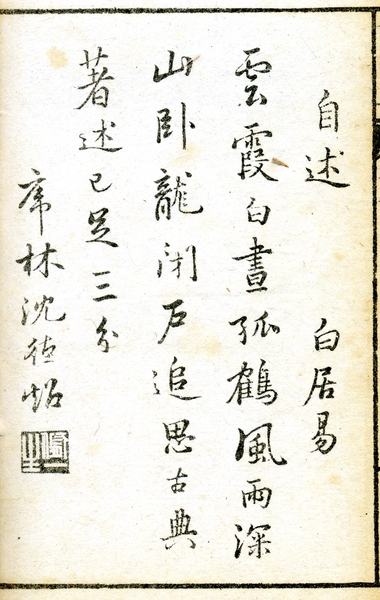 自述 白居易
雲霞白晝孤鶴風雨深
山卧龍閉戶追思古典
著述已足三分
虎林沈德